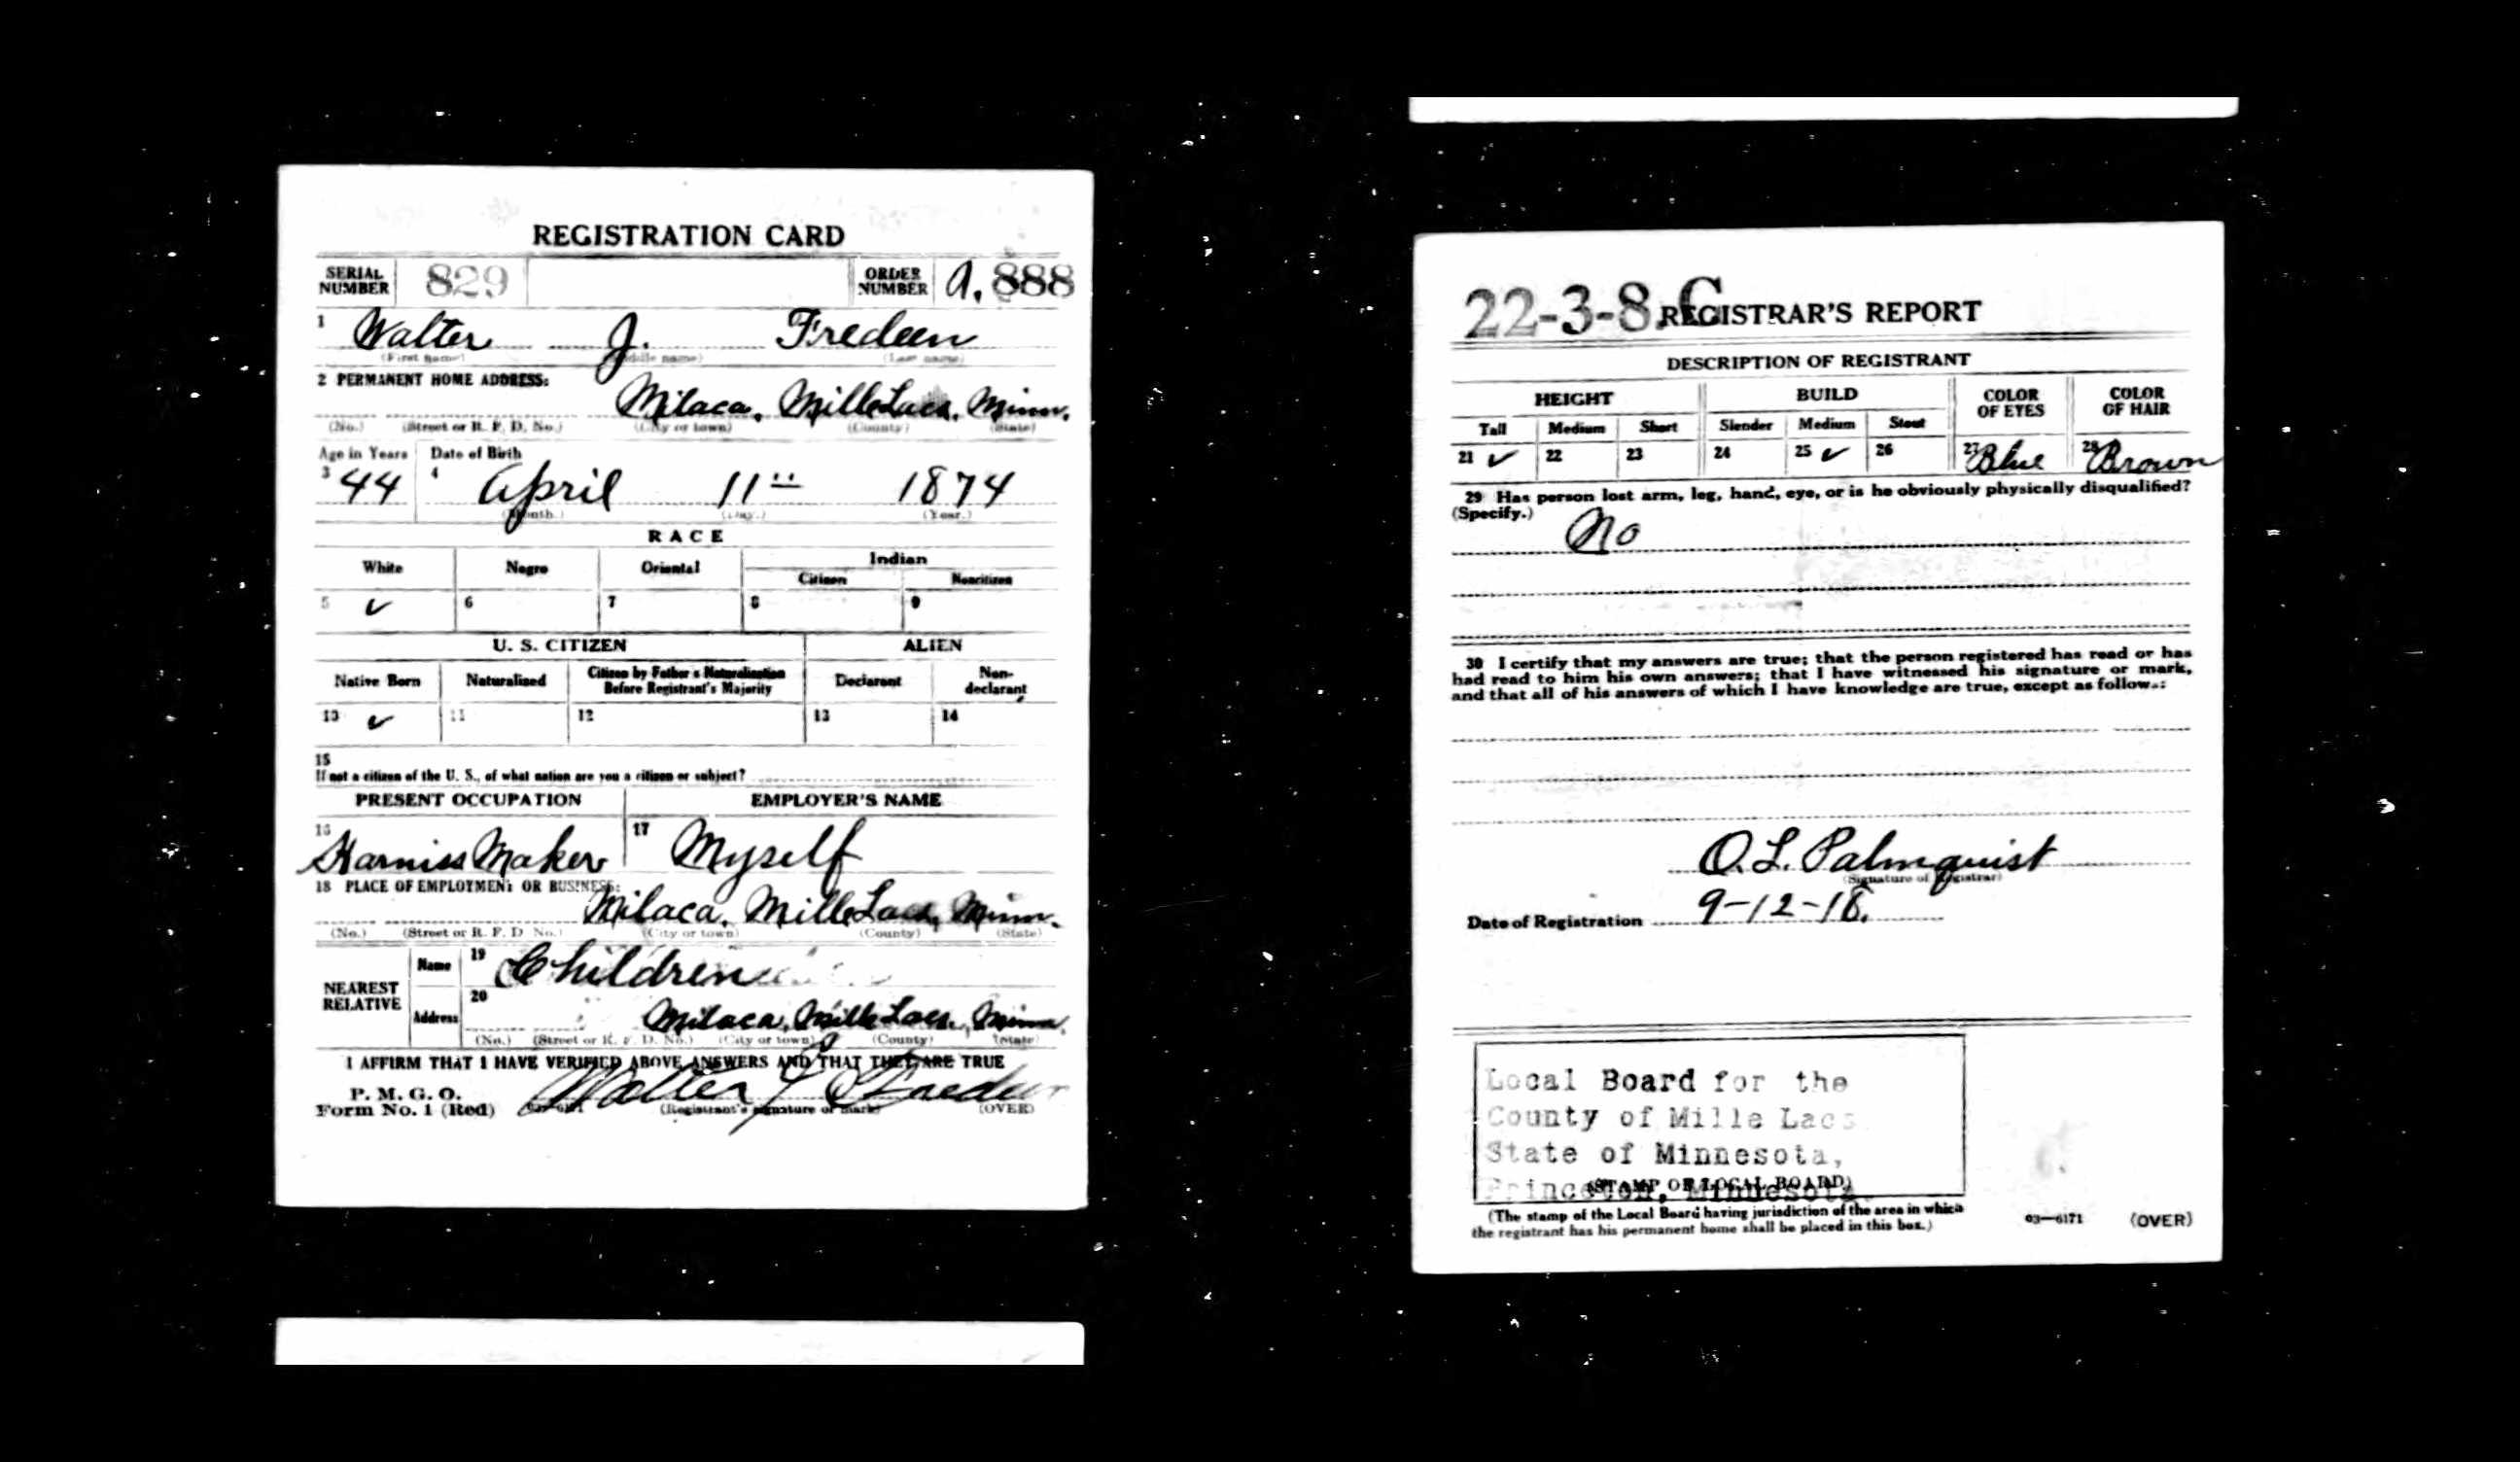 REGISTRATION CARD
SERIAL NUMBER 829 ORDER NUMBER A. 888
1 Walter J. Fredeen
(First name) (Middle name) (Last name)
2 PERMANENT HOME ADDRESS:
Milaca, Mille Lacs, Minn.
(No.) (Street or R. F. D. No.) (City or town) (County) (State)
Age in Years Date of Birth
3 44 4 April 11th 1874
(Month.) (Day.) (Year.)
RACE
White Negro Oriental Indian
Citizen Noncitizen
5 ✓ 6 7 8 9
U. S. CITIZEN ALIEN
Native Born Naturalized Citizen by Father's Naturalization Before Registrant's Majority Declarant Non-declarant
10 ✓ 11 12 13 14
15
If not a citizen of the U. S., of what nation are you a citizen or subject?
PRESENT OCCUPATION EMPLOYER'S NAME
16 Harniss Maker 17 Myself
18 PLACE OF EMPLOYMENT OR BUSINESS:
Milaca, Mille Lacs, Minn.
(No.) (Street or R. F. D. No.) (City or town) (County) (State)
NEAREST RELATIVE
Name 19 Children
Address 20 Milaca, Mille Lacs, Minn.
(No.) (Street or R. F. D. No.) (City or town) (County) (State)
I AFFIRM THAT I HAVE VERIFIED ABOVE ANSWERS AND THAT THEY ARE TRUE
P. M. G. O.
Form No. 1 (Red) Walter J Fredeen
(Registrant's signature or mark) (OVER)
22-3-8. C
REGISTRAR'S REPORT
DESCRIPTION OF REGISTRANT
HEIGHT BUILD COLOR OF EYES COLOR OF HAIR
Tall Medium Short Slender Medium Stout
21 ✓ 22 23 24 25 ✓ 26 27 Blue 28 Brown
29 Has person lost arm, leg, hand, eye, or is he obviously physically disqualified?
(Specify.) No
30 I certify that my answers are true; that the person registered has read or has
had read to him his own answers; that I have witnessed his signature or mark,
and that all of his answers of which I have knowledge are true, except as follows:
O. L. Palmquist
(Signature of Registrar)
Date of Registration 9-12-18.
Local Board for the
County of Mille Lacs
State of Minnesota,
Princeton, Minnesota.
(STAMP OF LOCAL BOARD)
(The stamp of the Local Board having jurisdiction of the area in which
the registrant has his permanent home shall be placed in this box.)
03—6171 (OVER)